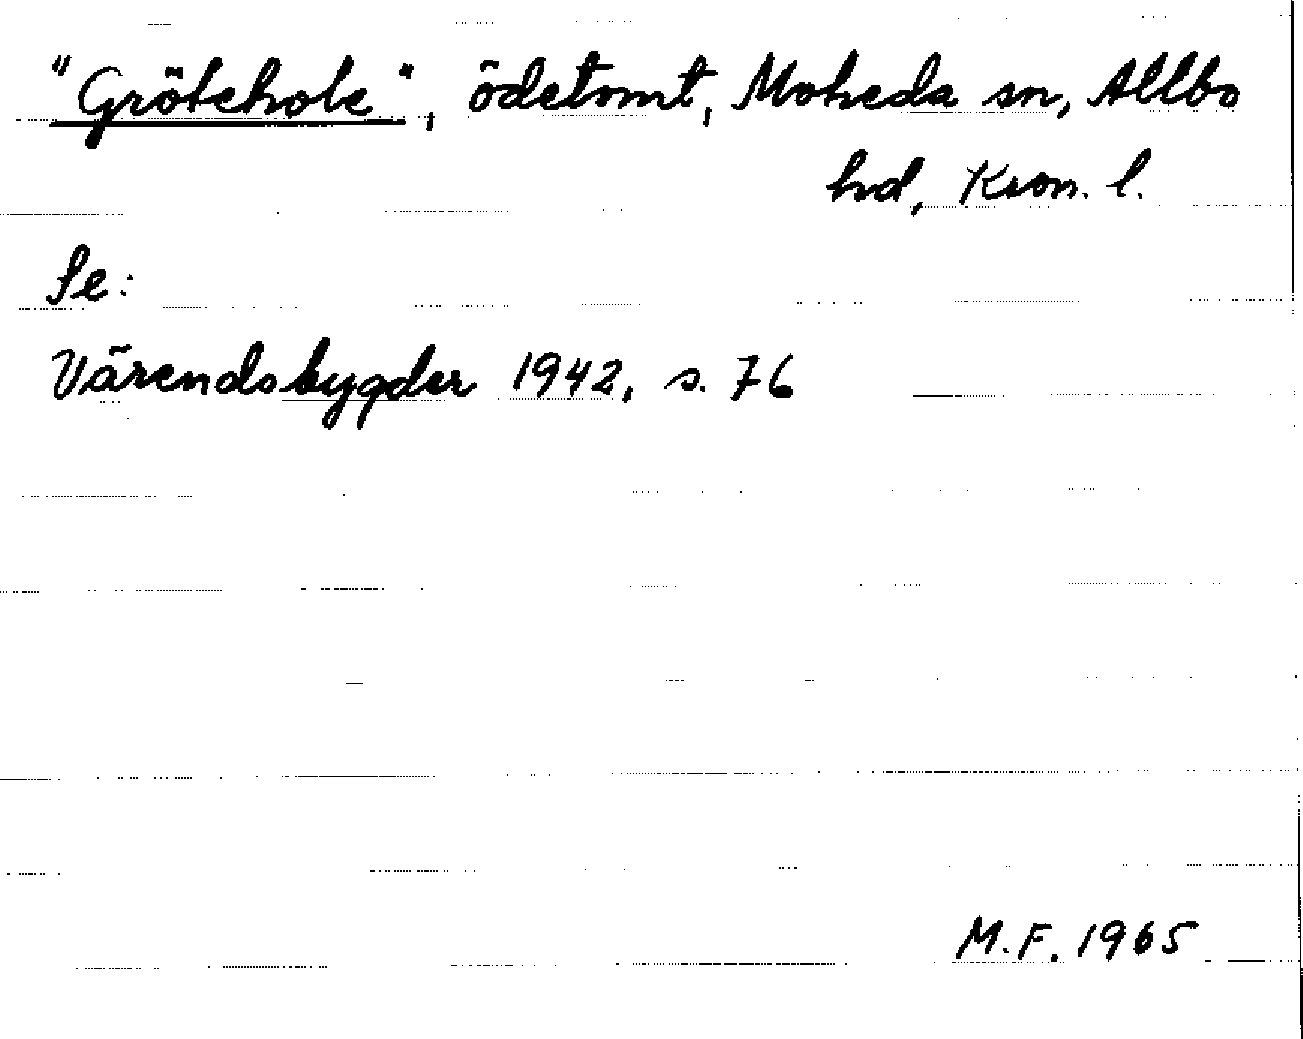 "Grötehole", ödetomt, Moheda sn, Allbo
hd, Kron. l.
Se:
Värendsbygder 1942, s. 76
M.F. 1965